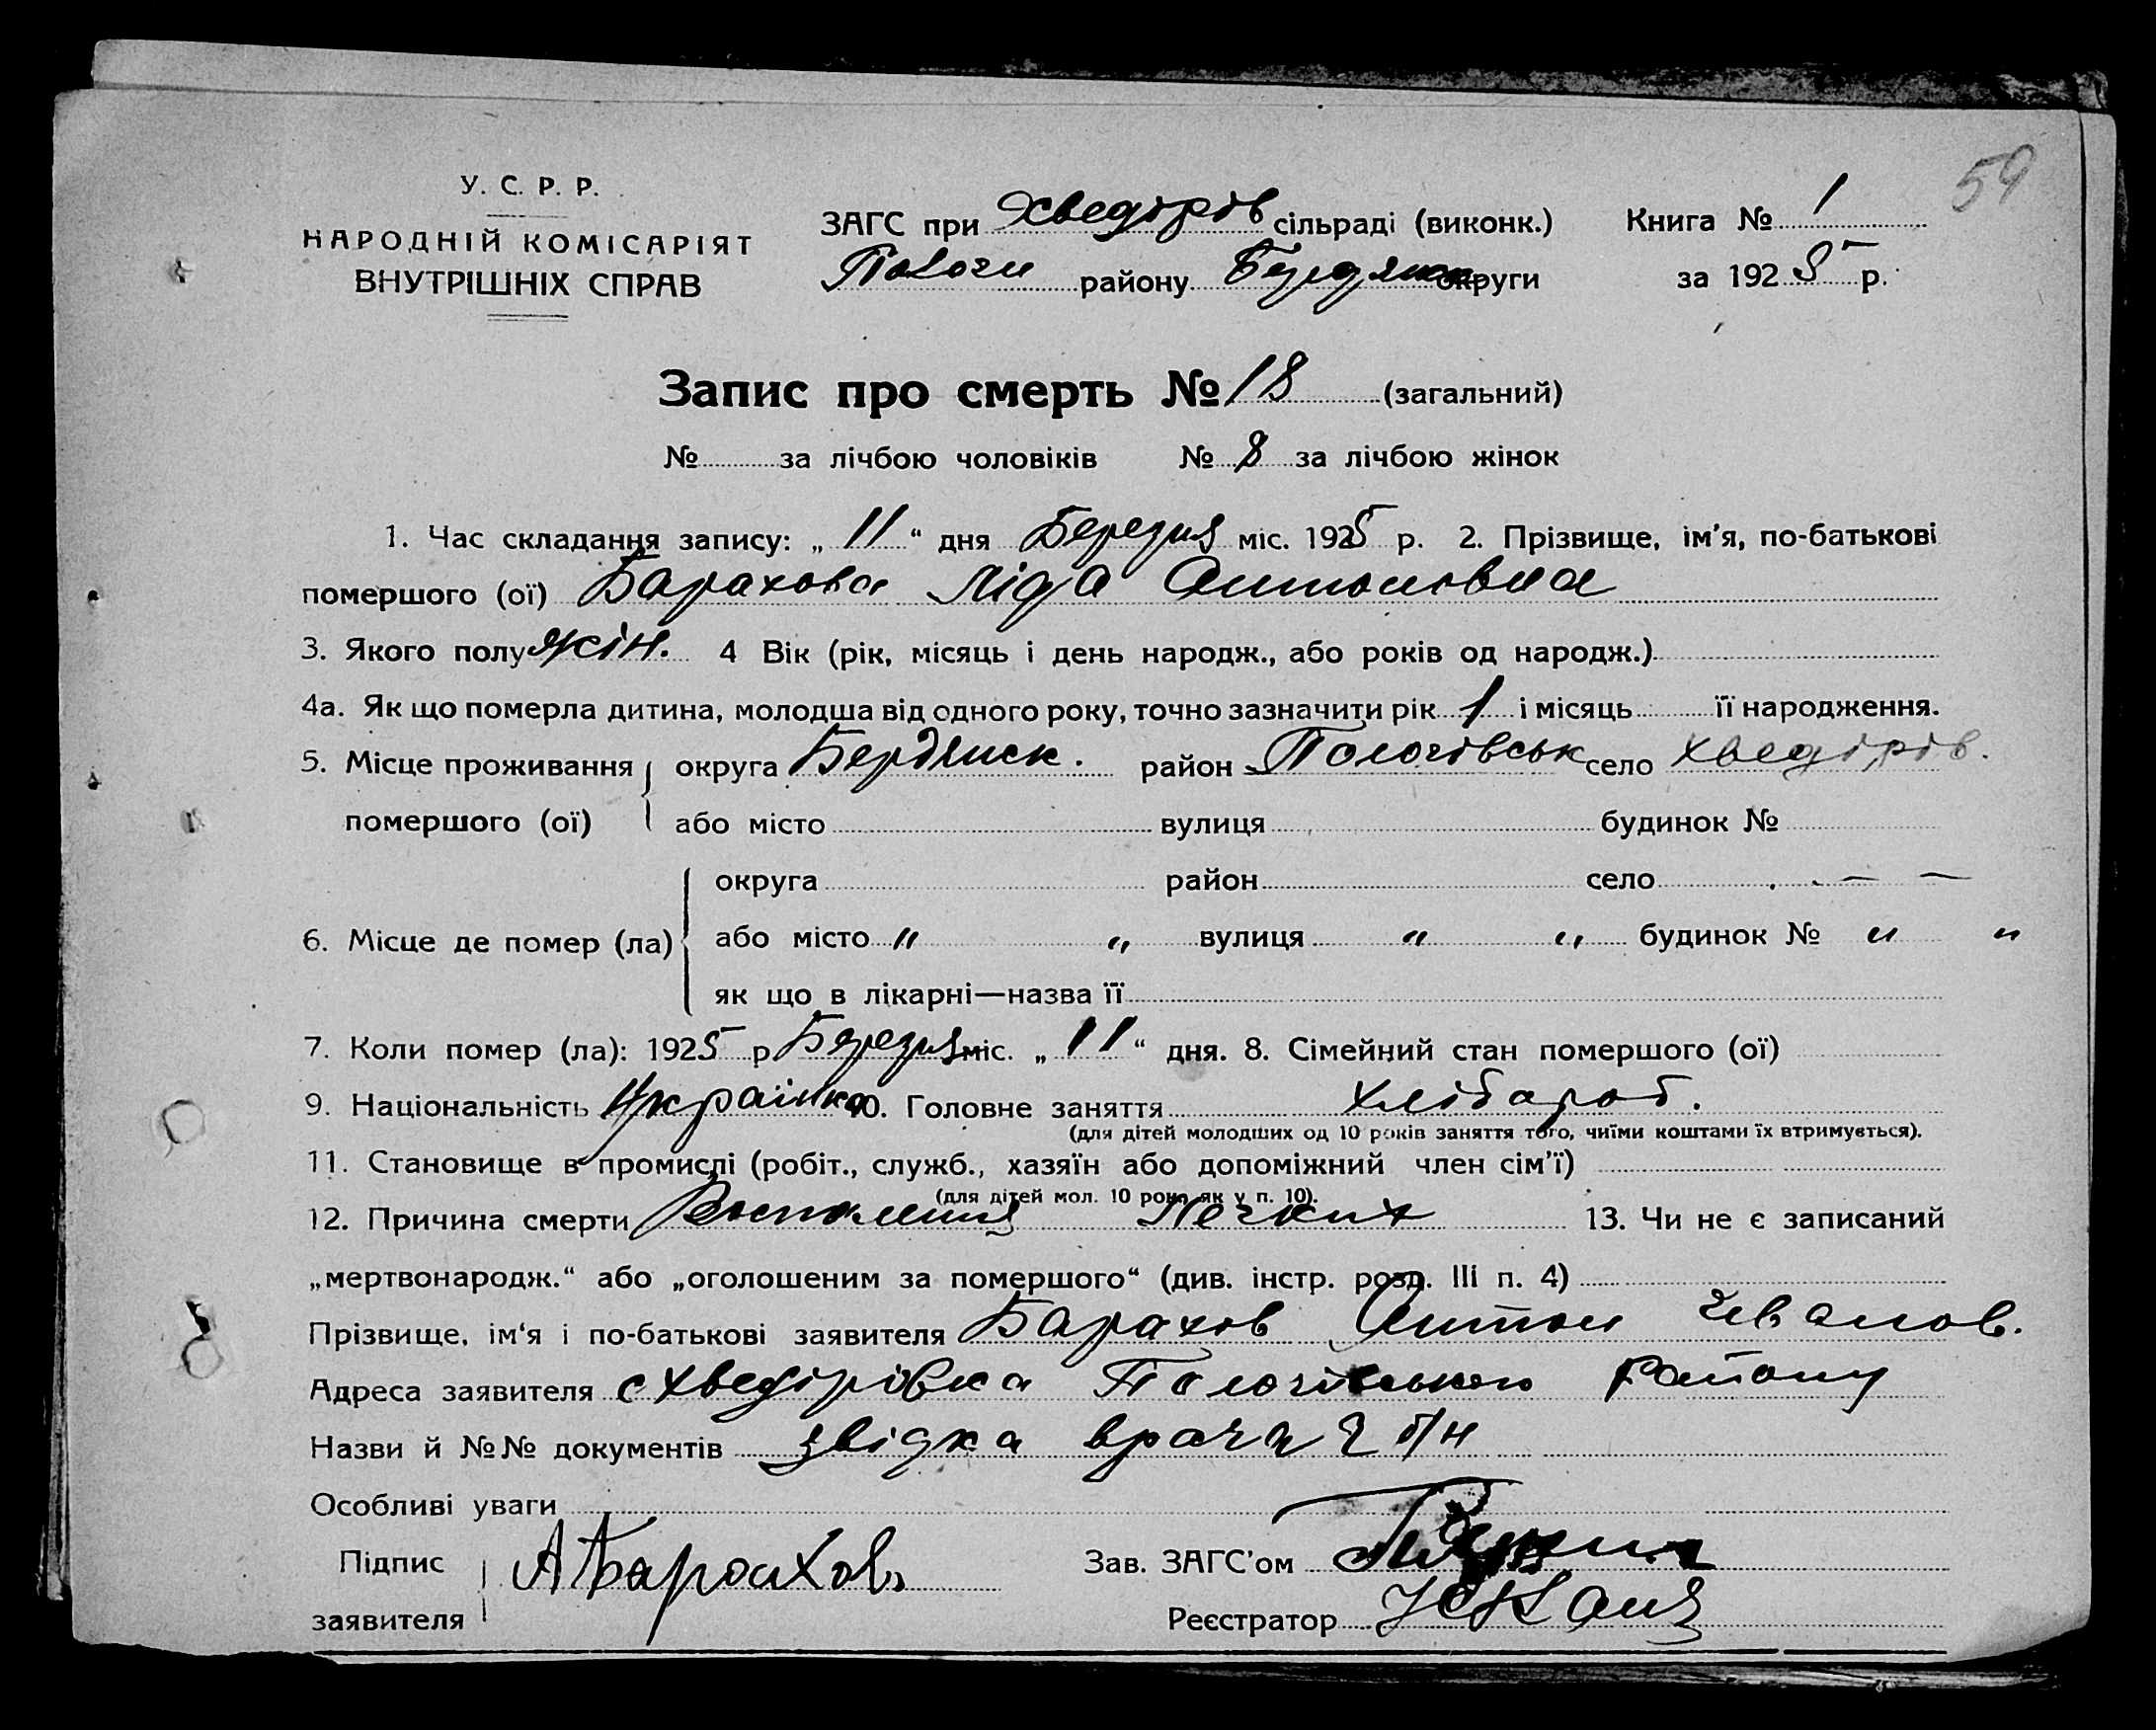 59
У. С. Р. Р.
НАРОДНІЙ КОМІСАРІЯТ
ВНУТРІШНІХ СПРАВ
ЗАГС при Хведорів сільраді (виконк.) Книга № 1
Пологи району Бердянск округи за 1925 р.
Запис про смерть № 18 (загальний)
№ за лічбою чоловіків № 8 за лічбою жінок
1. Час складання запису: „ 11 “ дня Березня міс. 1925 р. 2. Прізвище, ім'я, по-батькові
помершого (ої) Барахова Ліда Антоновна
3. Якого полу жін. 4 Вік (рік, місяць і день народж., або років од народж.)
4а. Як що померла дитина, молодша від одного року, точно зазначити рік 1 і місяць її народження.
5. Місце проживання округа Бердянск. район Пологівськ село Хведорів.
помершого (ої) або місто вулиця будинок №
округа район село — —
6. Місце де помер (ла) або місто „ „ вулиця „ „ будинок № „ „
як що в лікарні—назва її
7. Коли помер (ла): 1925 р Березня міс. „ 11 “ дня. 8. Сімейний стан помершого (ої)
9. Національність Українка 10. Головне заняття Хлібароб.
(для дітей молодших од 10 років заняття того, чиїми коштами їх втримується).
11. Становище в промислі (робіт., служб., хазяїн або допоміжний член сім'ї)
(для дітей мол. 10 рок. як у п. 10).
12. Причина смерти Воспаления Легких 13. Чи не є записаний
„мертвонародж.“ або „оголошеним за помершого“ (див. інстр. розд. III п. 4)
Прізвище, ім'я і по-батькові заявителя Барахов Антон Иванов.
Адреса заявителя с Хведорівка Пологівського Району
Назви й №№ документів звідка врача б/н
Особливі уваги
Підпис заявителя А Барахов Зав. ЗАГС'ом
Реєстратор